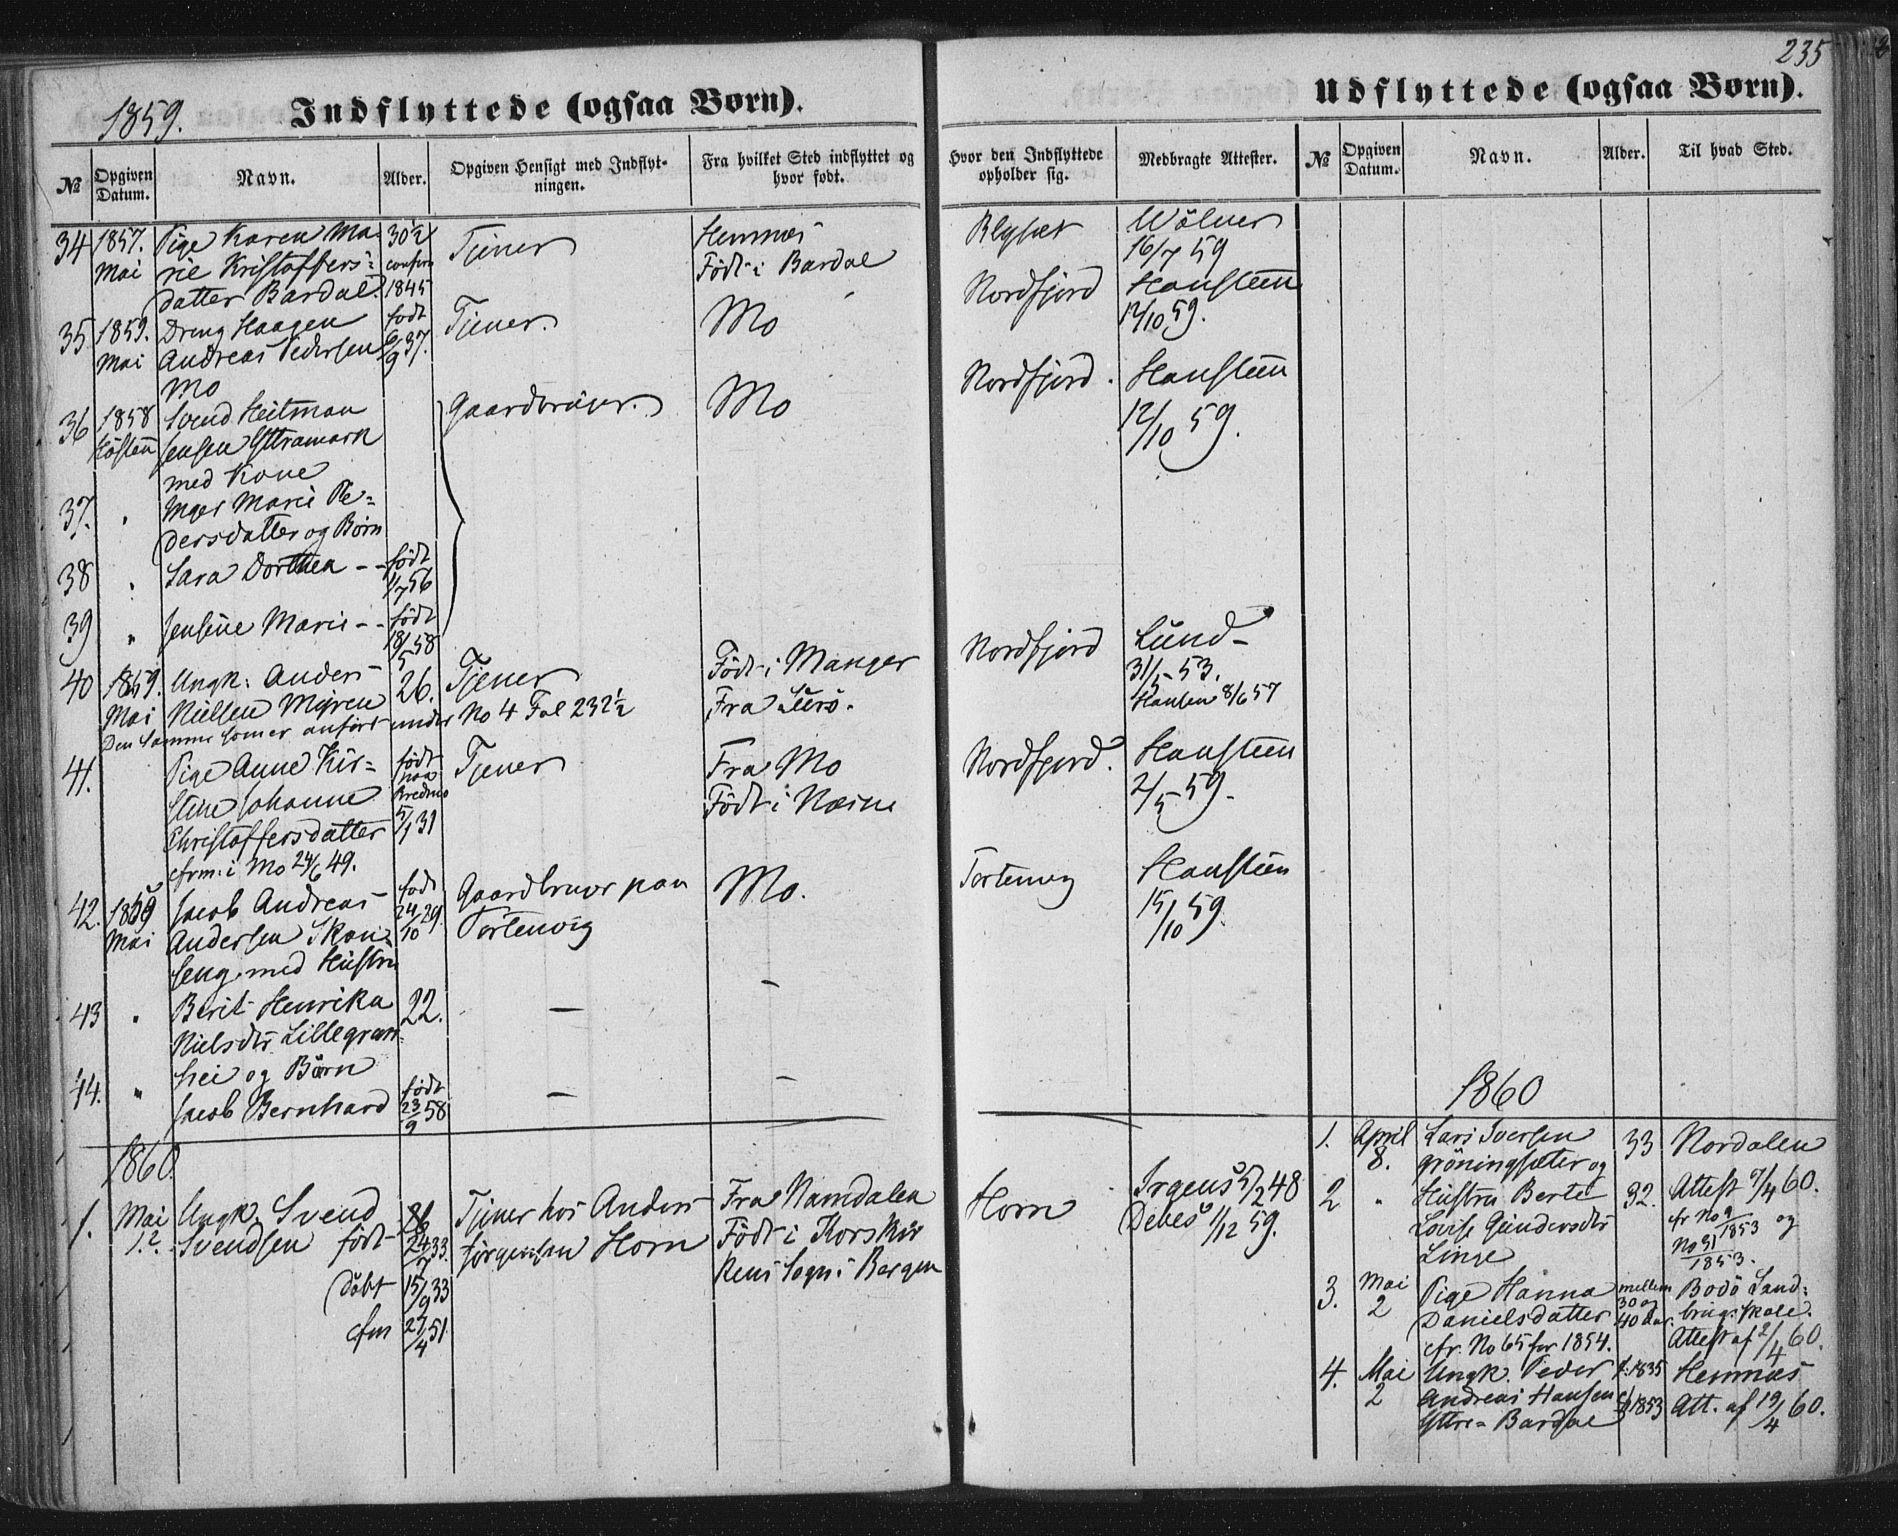 235
1859.
Indflyttede (ogsaa Børn).
Udflyttede (ogsaa Børn).
№
Opgiven Datum.
Navn.
Alder.
Opgiven Hensigt med Indflytningen.
Fra hvilket Sted indflyttet og hvor født.
Hvor den Indflyttede opholder sig.
Medbragte Attester.
№
Opgiven Datum.
Navn.
Alder.
Til hvad Sted.
34 1857. Pige Karen Ma- 30½ Tjener Hemnæs
Mai rie Kristoffers- confirm Født i Bardal
datter Bardal. 1845
Wölner
16/7 59
35 1859. Dreng Haagen født Tjener. Mo Nordfjord Hansteen
Mai Andreas Pedersen 6/9 37. 12/10 59.
Mo
36 1858 Svend Heitman Gaardbruger. Mo Nordfjord. Hansteen
Høsten Jensen Yttramark 12/10 59.
med Kone
37. " Inger Marie Pe-
dersdatter og Børn
38 " Sara Dorthea - - født
1/7 56
39 " Jensine Marie - - født
18/5 58
40 1859. Ungk: Anders 26. Tjener Født i Manger Nordfjord Lund-
Mai Nielsen Myren Fra Lurö. 31/5 53.
Hansen 8/6 57
Den samme som er anført under No 4 Fol 232½
41. Pige Anne Kir- født Tjener Fra Mo Nordfjord. Hansteen
stine Johanne paa Bredmo Født i Næsne 2/5 59.
Christoffersdatter 5/1 31
cfrm. i Mo 24/6 49.
42. 1859 Jacob Andreas født Gaardbruger paa Mo. Hansteen
Mai Andersen Skon- 24/10 29. 15/10 59.
seng med Hustru
43 " Berit Henrika 22. — —
Nielsdtr Lillegran-
hei og Børn
44. " Jacob Bernhard født — —
23/9 58
1860.
1. Mai Ungk. Svend 26 Tjener hos Anders Fra Namdalen Horn Irgens 5/2 48
12. Svendsen født 24/7 33. Jørgensen Horn Født i Korskir Debes 1/12 59.
Døbt 15/9 33 kens Sogn i Bergen
cfm 27/4 51
1860
1. April Lars Iversen 33 Nordalen
8. Gröningsæter og Attest 7/4 60.
2 " Hustru Berte 32. cfr No 9/1853 og
Lovise Gundersdtr No 31/1853.
Linge
3. Mai Pige Hanna mellem Bodö Land-
2 Danielsdatter 30 og 40 Aar. brugsskole.
cfr. No 65 for 1854. Attest af 2/4 60.
4. Mai Ungk. Peder f. 1835 Hemnæs
2 Andreas Hansen cf 1853 Att. af 19/4 60.
Yttre-Bardal